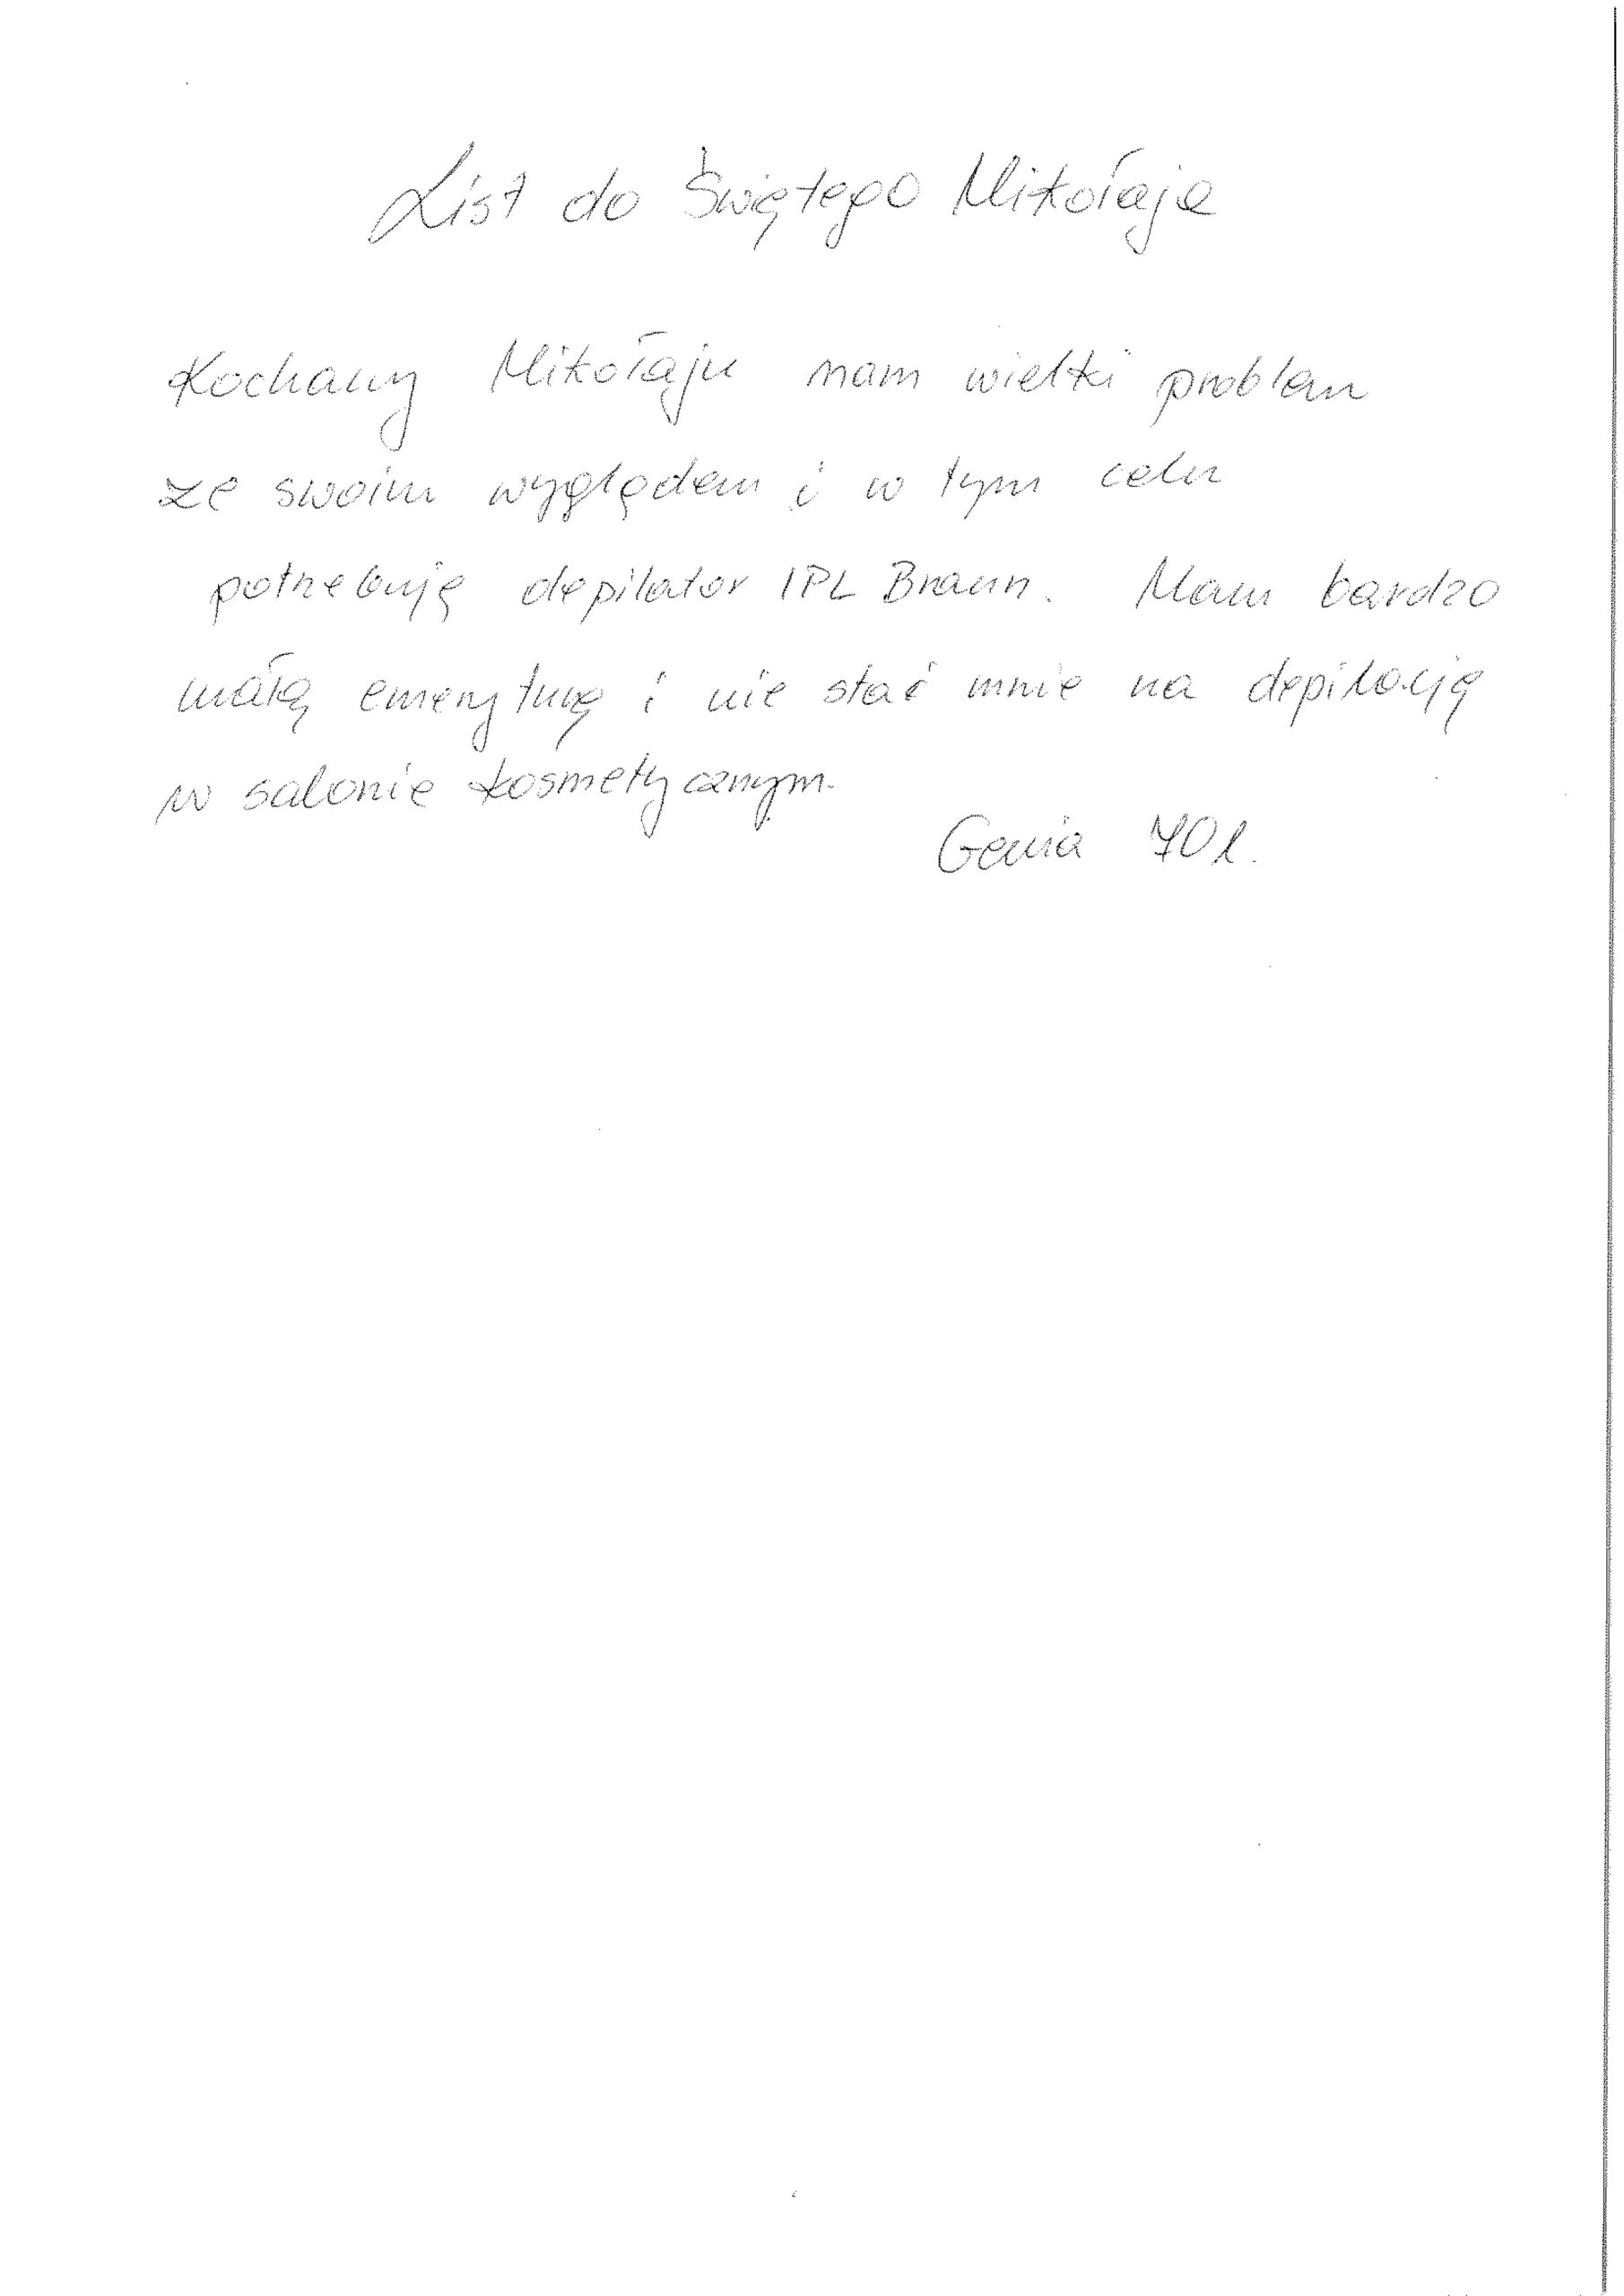 List do Świętego Mikołaja
Kochany Mikołaju mam wielki problem
ze swoim wyglądem i w tym celu
potrzebuję depilator IPL Braun. Mam bardzo
małą emeryturę i nie stać mnie na depilację
w salonie kosmetycznym.
Genia 70 l.